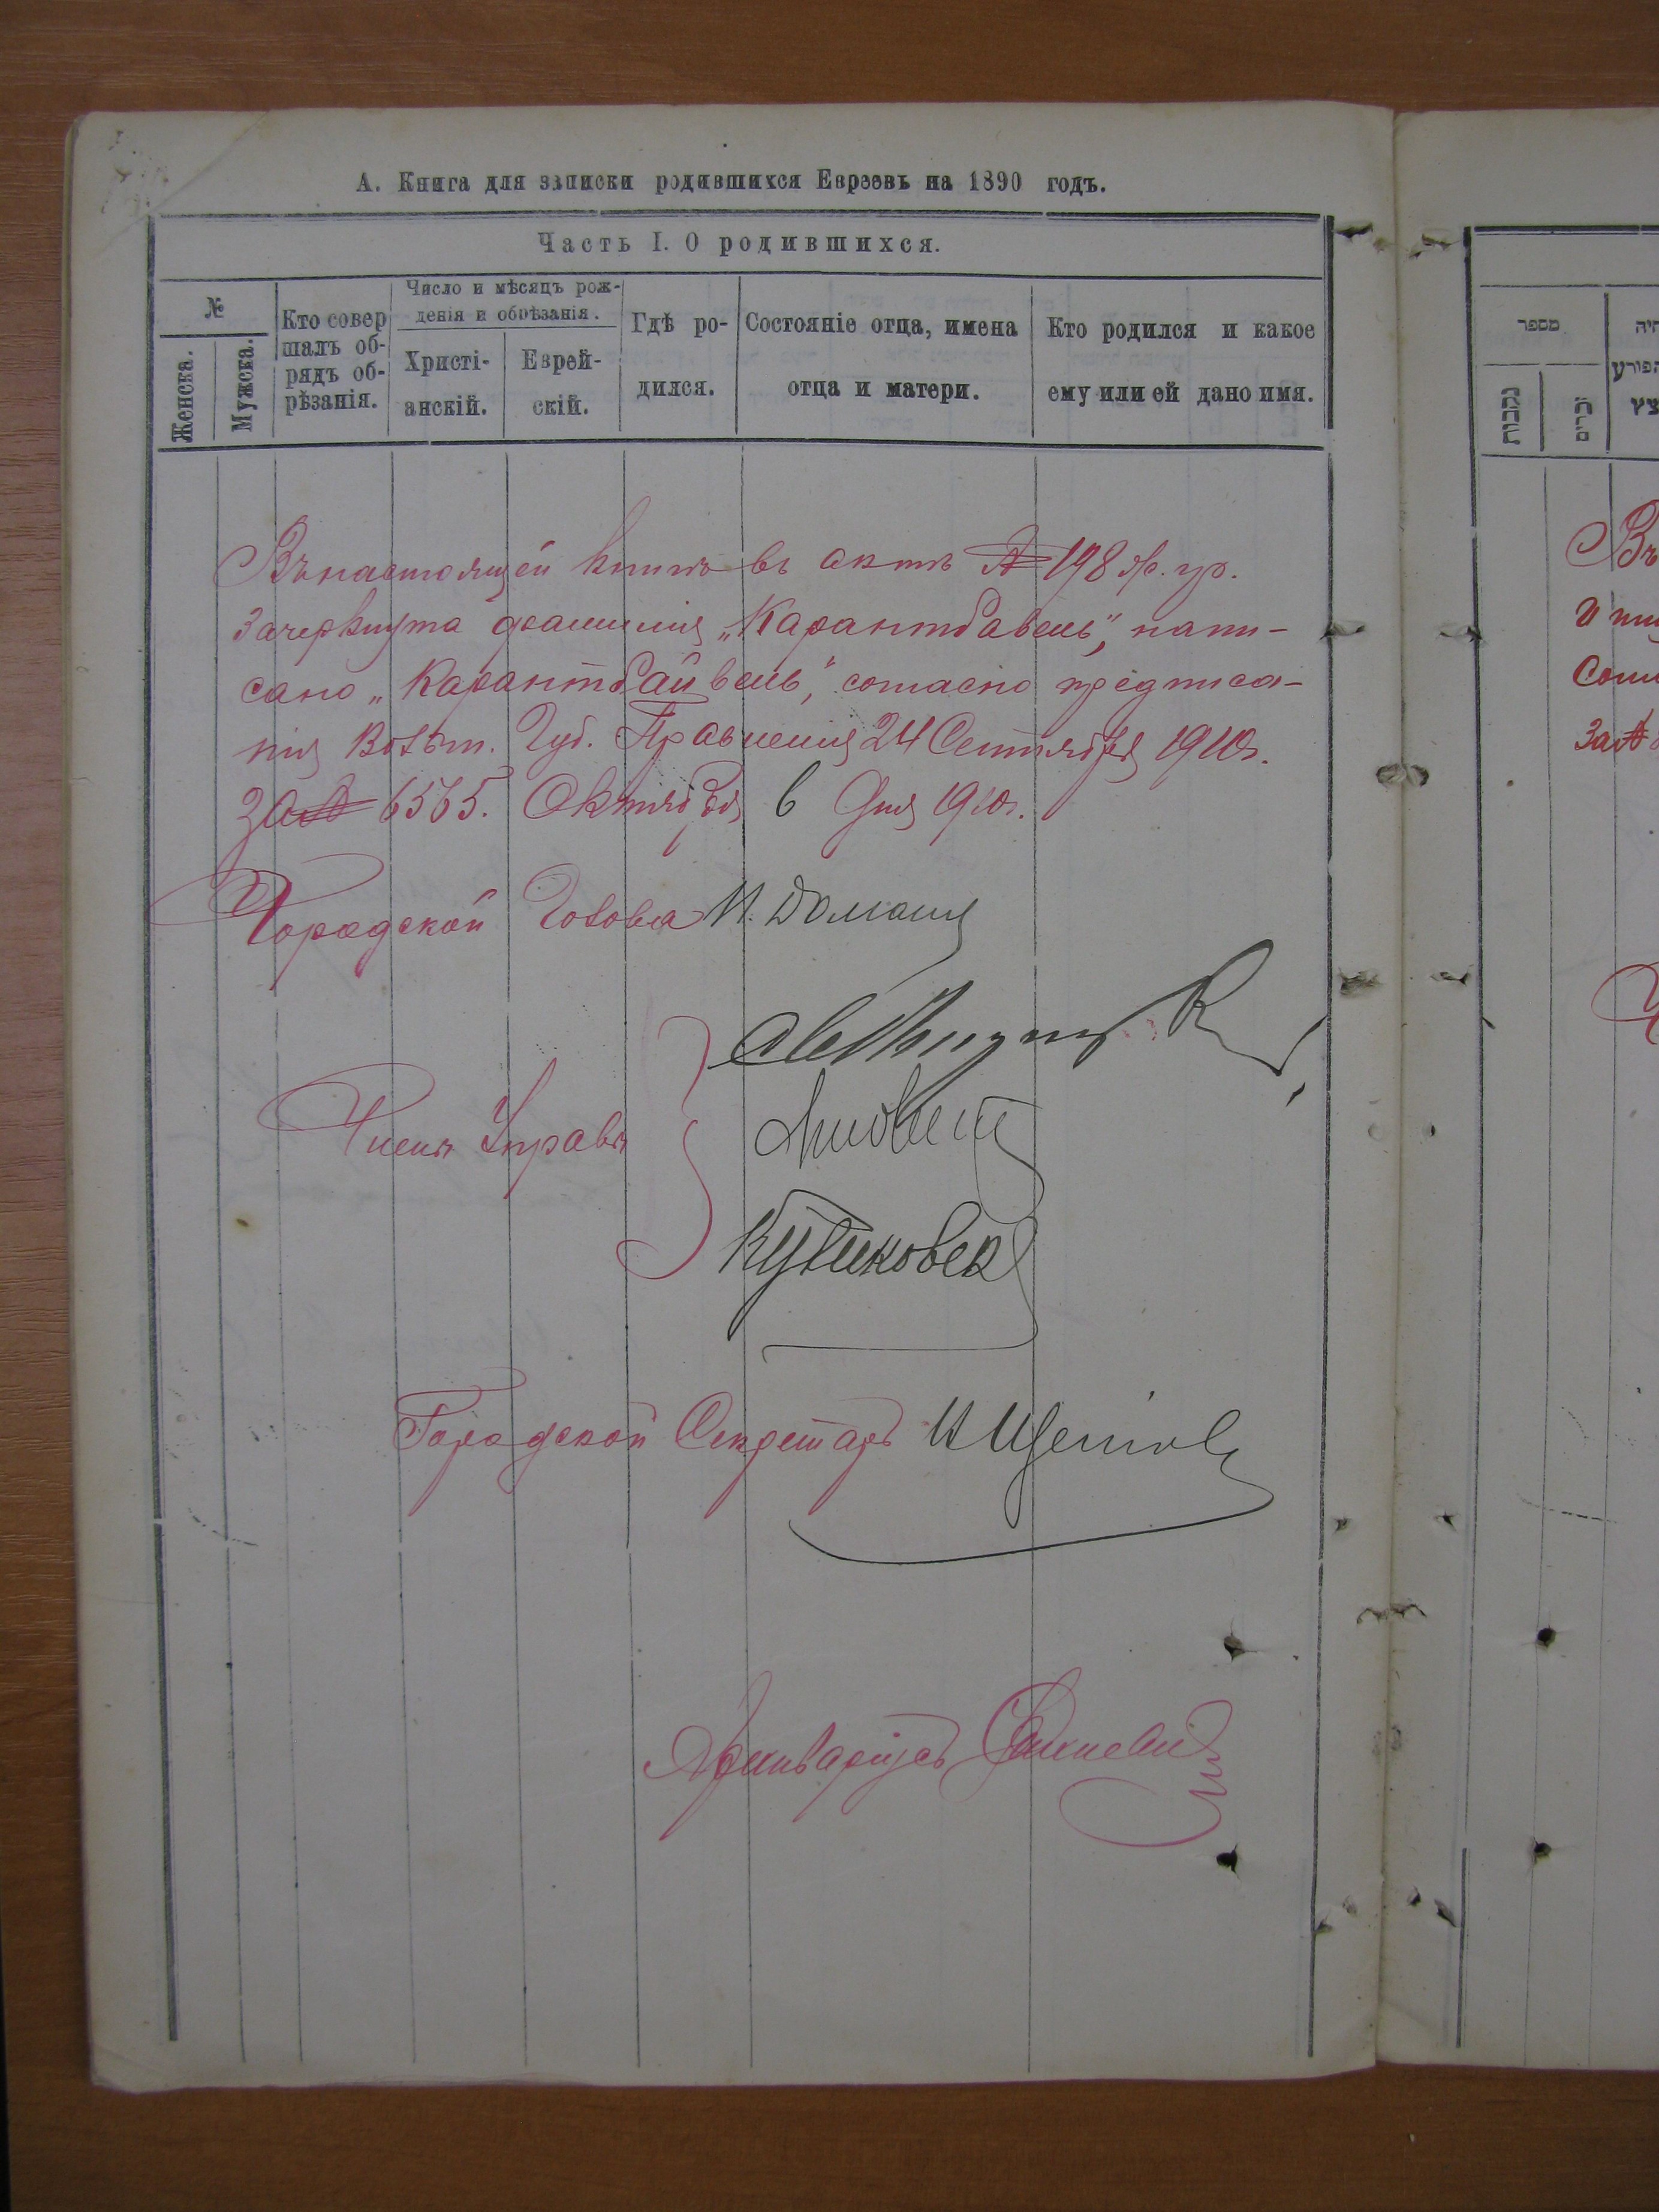 А. Книга для записки родившихся Евреевъ на 1890 годъ.
Часть I. О родившихся.
№
Женска.
Мужска.
Кто совер
шалъ об-
рядъ об-
рѣзанія.
Число и мѣсяцъ рож-
денія и обрѣзанія.
Христі-
анскій.
Еврей-
скій.
Гдѣ ро-
дился.
Состояніе отца, имена
отца и матери.
Кто родился и какое
ему или ей дано имя.
Въ настоящей книгѣ въ актѣ № 198 гр.
Зачеркнута фамилія „Карантбавель“, напи-
сано „Карантбайвель“, согласно предписа-
нія Волын. Губ. Правленія 24 Сентября 1910г.
За № 6565. Октября 6 Дня 1910г.
Городской Голова
Члены Управы
Городской Секретарь
Архиваріусъ
מספר
נקבות
זכרים
Въ
За №